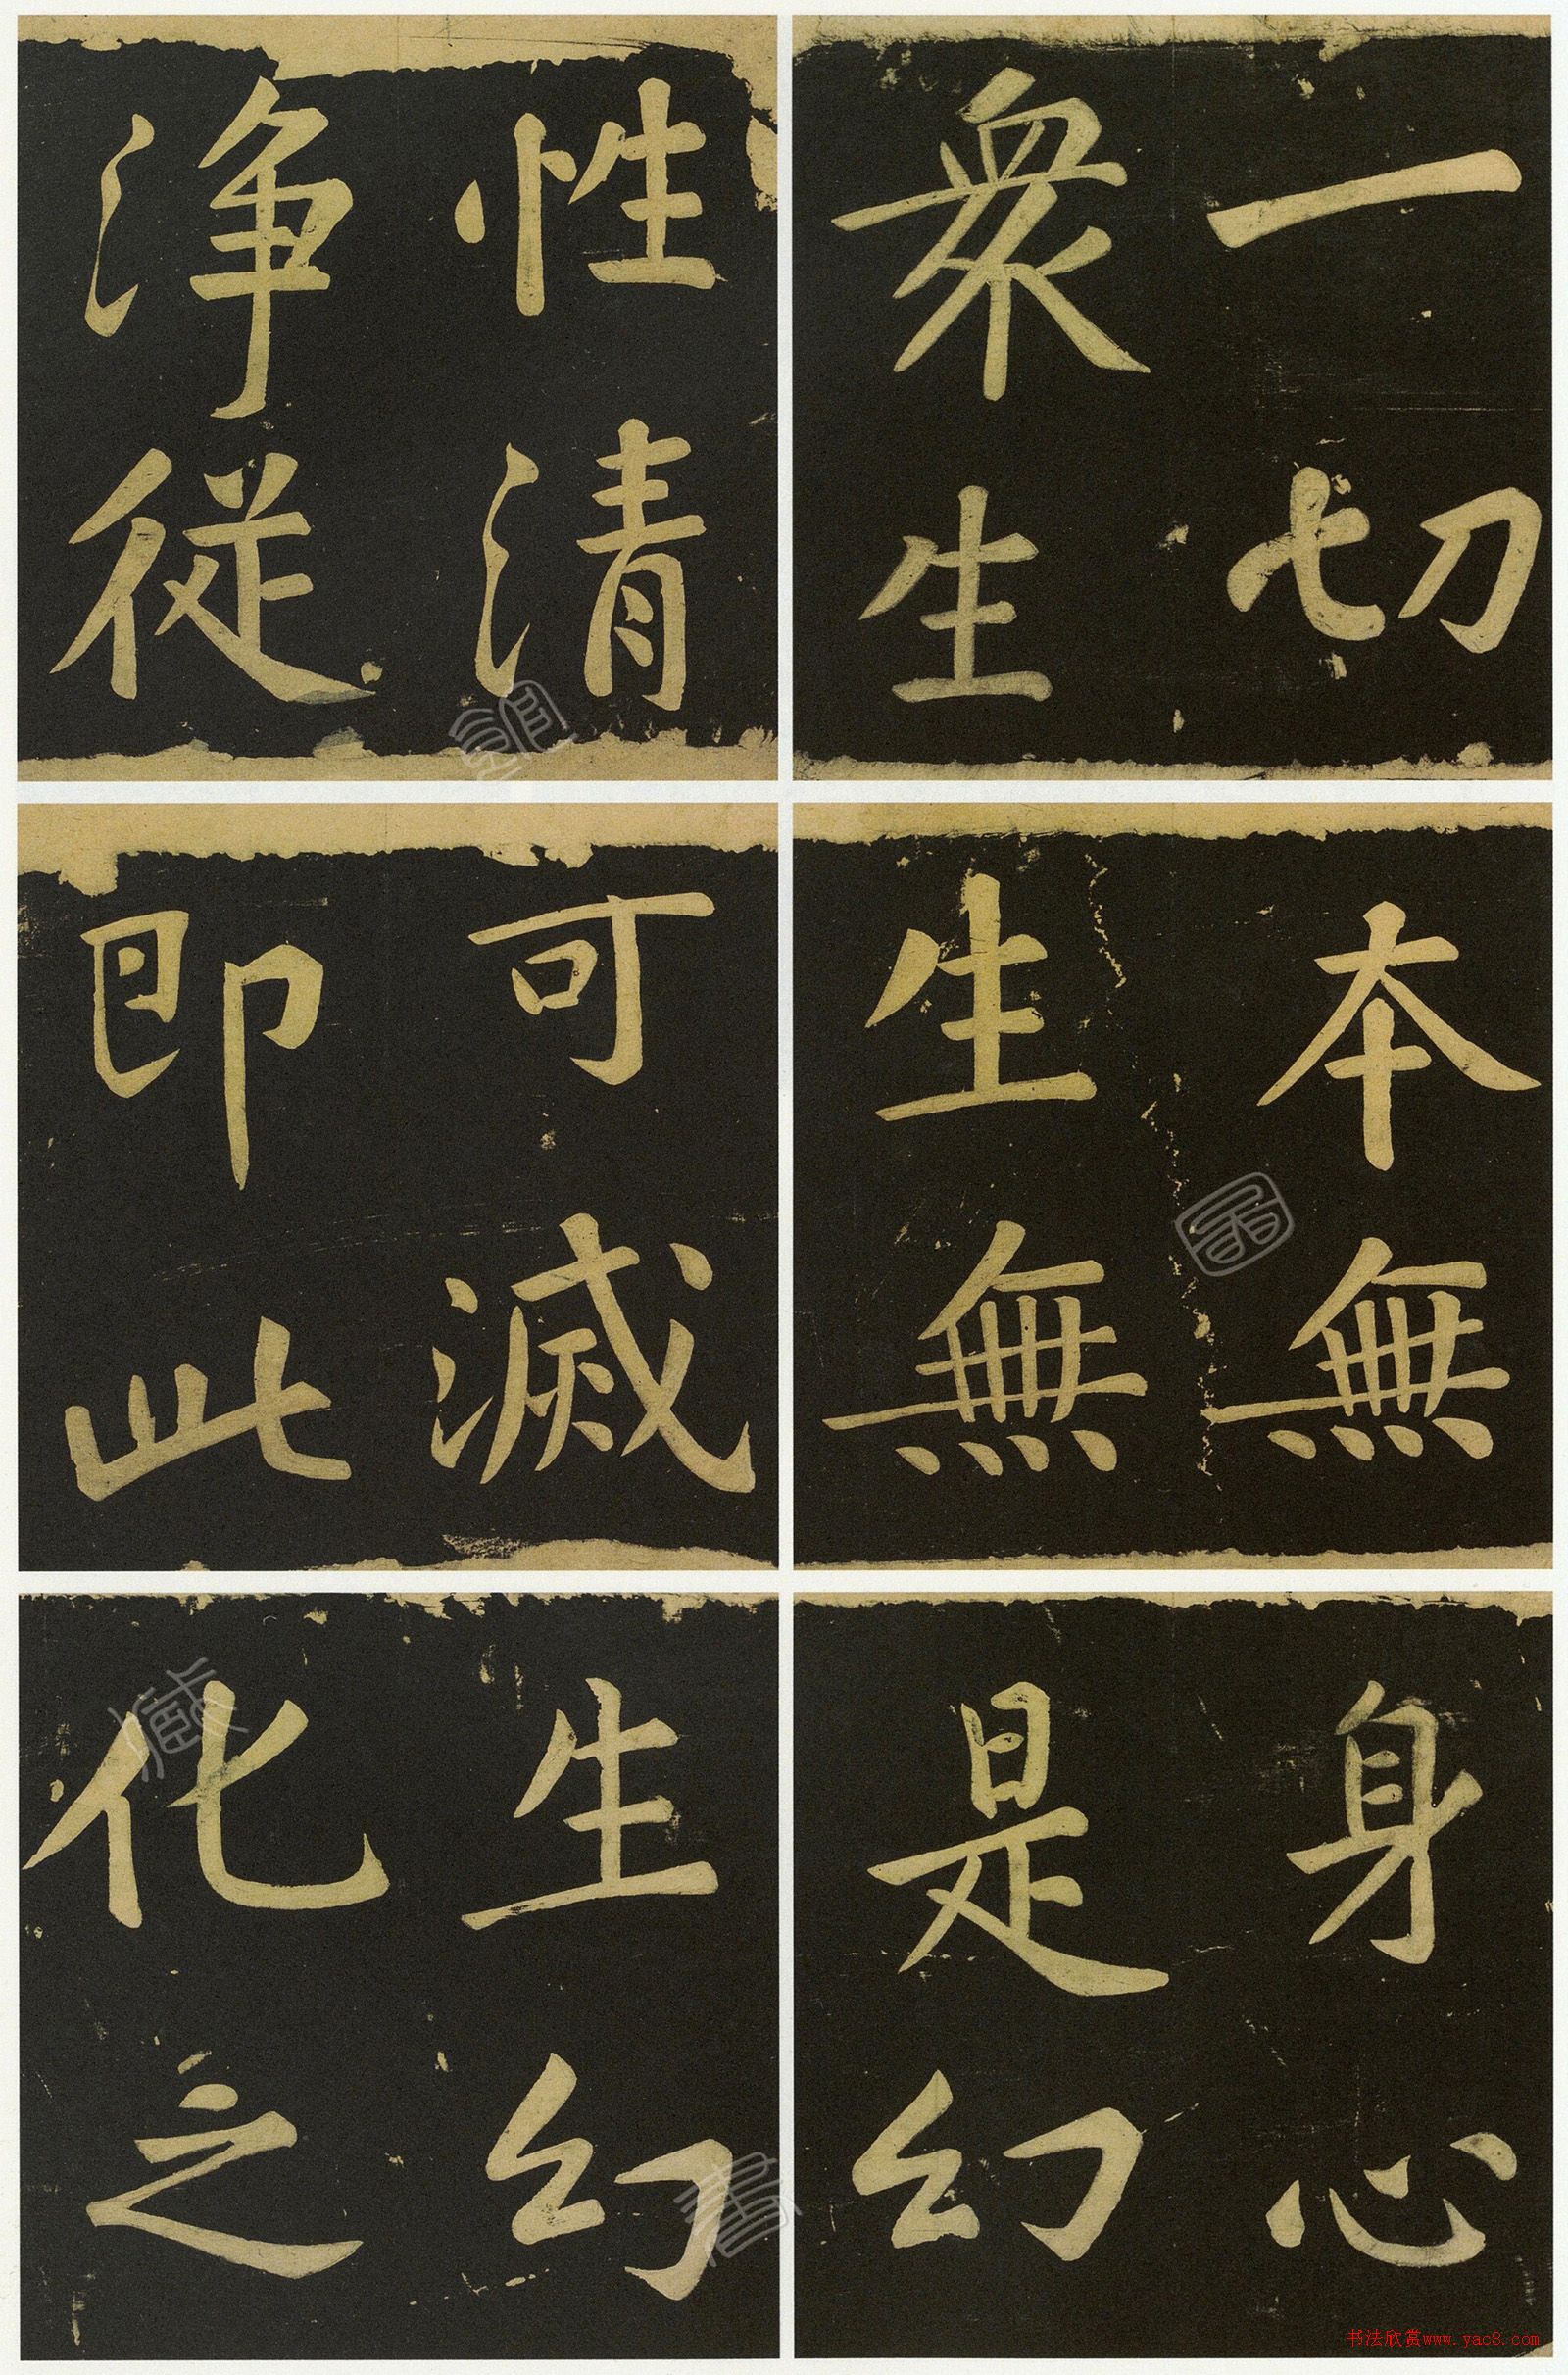 一切
衆生
性清
浄従
本無
生無
可滅
即此
身心
是幻
生幻
化之
书法欣赏www.yac8.com